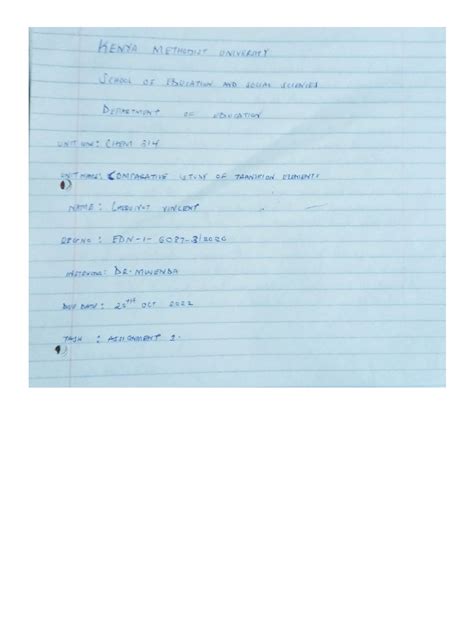 KENYA METHODIST UNIVERSITY
SCHOOL OF EDUCATION AND SOCIAL SCIENCES
DEPARTMENT OF EDUCATION
UNIT CODE: CHEM 314
UNIT NAME: COMPARATIVE STUDY OF TRANSITION ELEMENTS
NAME: VINCENT
REG NO: EDN-1-6087-3/2020
INSTRUCTOR: DR. MWENDA
DUE DATE: OCT 2022
TASK: ASSIGNMENT